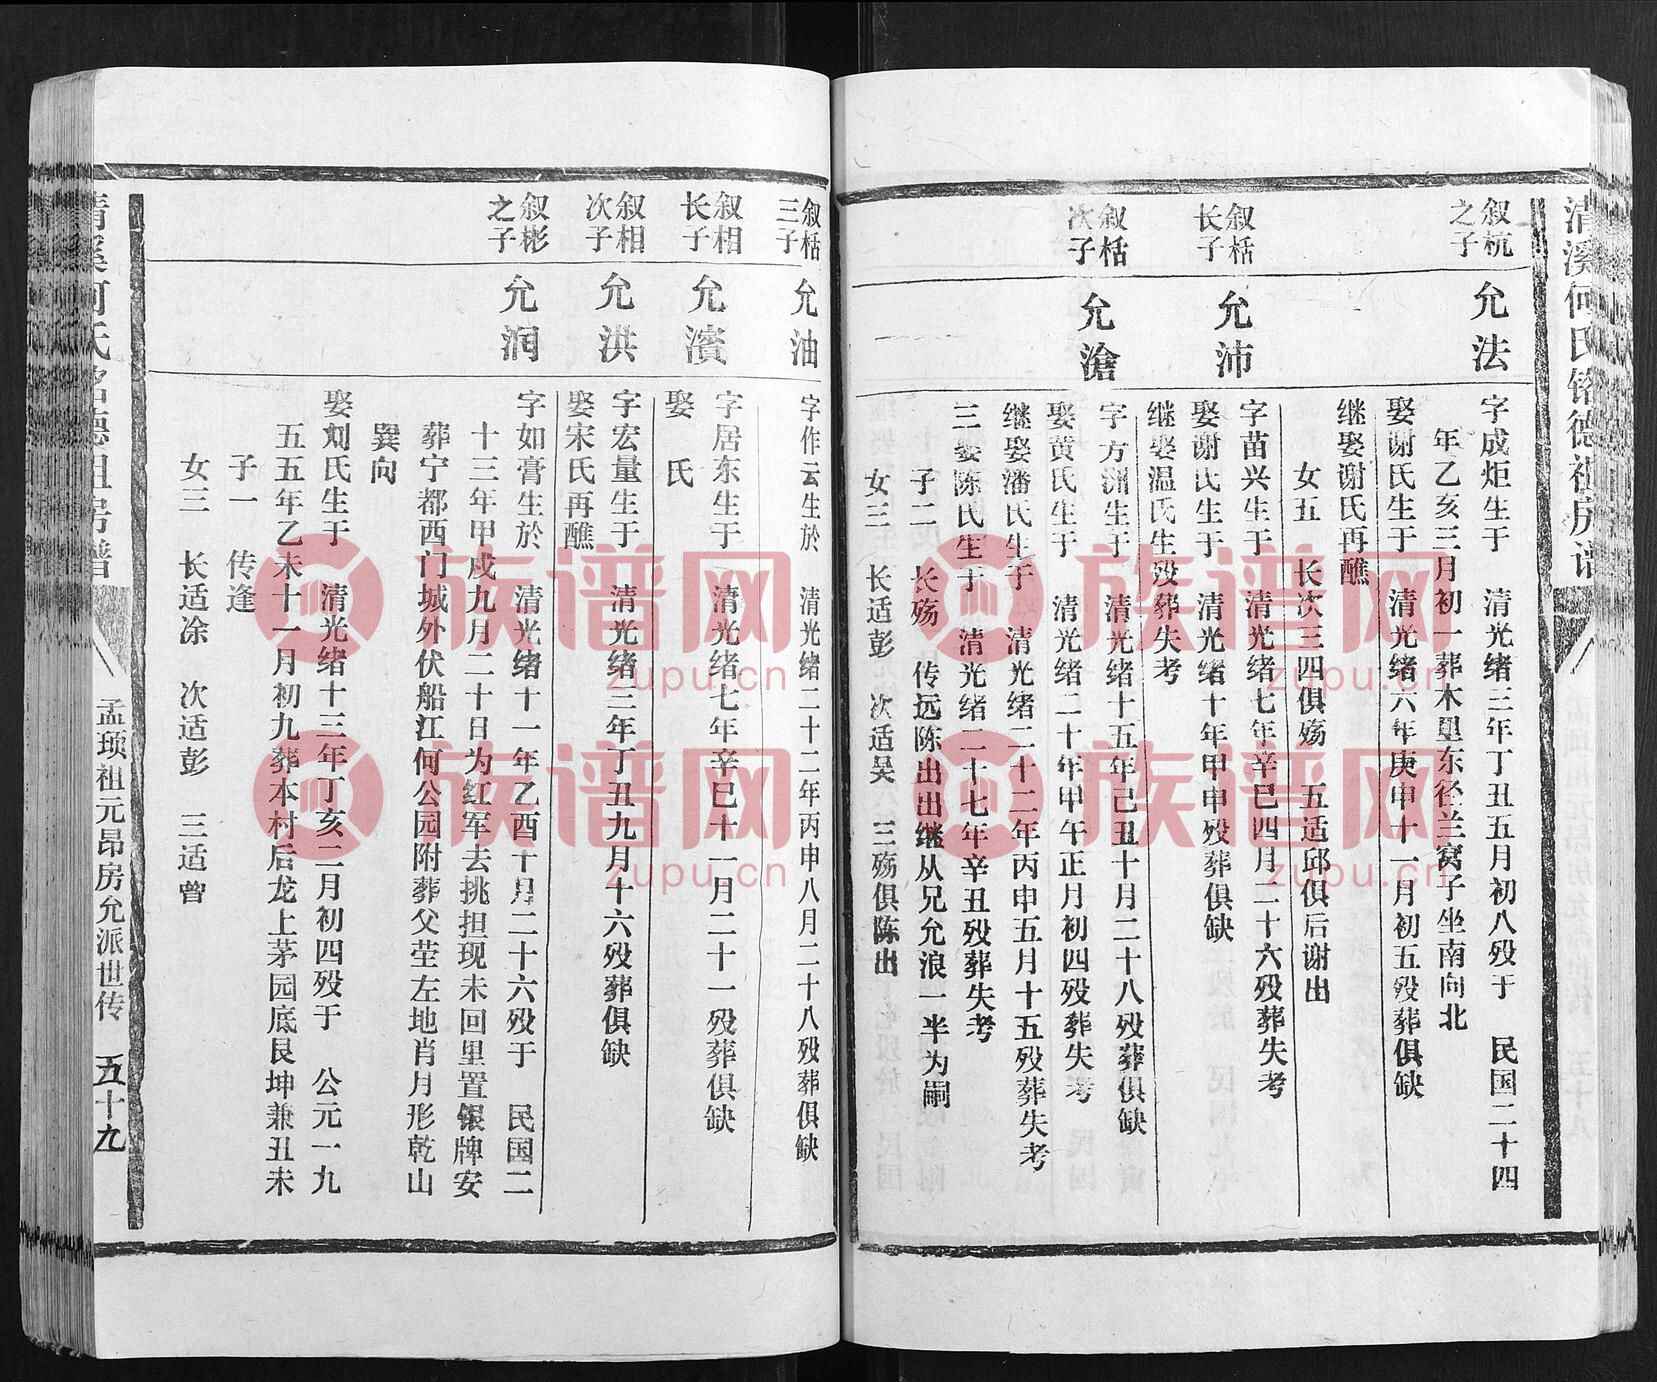 清溪何氏铭德祖房谱
叙杭
之子
允法
字成炬生于　清光绪三年丁丑五月初八殁于　民国二十四
年乙亥三月初一葬木里东径兰窝子坐南向北
娶谢氏生于　清光绪六年庚申十一月初五殁葬俱缺
继娶谢氏再醮
女五　长次三四俱殇　五适邱俱后谢出
叙栝
长子
允沛
字苗兴生于　清光绪七年辛巳四月二十六殁葬失考
娶谢氏生于　清光绪十年甲申殁葬俱缺
继娶温氏生殁葬失考
叙栝
次子
允滄
字方洲生于　清光绪十五年己丑十月二十八殁葬俱缺
娶黄氏生于　清光绪二十年甲午正月初四殁葬失考
继娶潘氏生于　清光绪二十二年丙申五月十五殁葬失考
三娶陈氏生于　清光绪二十七年辛丑殁葬失考
子二　长殇　传远陈出出继从兄允浪一半为嗣
女三　长适彭　次适吴　三殇俱陈出
叙栝
三子
允油
字作云生於　清光绪二十二年丙申八月二十八殁葬俱缺
叙相
长子
允濱
字居东生于　清光绪七年辛巳十一月二十一殁葬俱缺
娶　氏
叙相
次子
允洪
字宏量生于　清光绪三年丁丑九月十六殁葬俱缺
娶宋氏再醮
叙彬
之子
允润
字如膏生於　清光绪十一年乙酉十月二十六殁于　民国二
十三年甲戍九月二十日为红军去挑担现未回里置银牌安
葬宁都西门城外伏船江何公园附葬父茔左地肖月形乾山
巽向
娶刘氏生于　清光绪十三年丁亥二月初四殁于　公元一九
五五年乙未十一月初九葬本村后龙上茅园底艮坤兼丑未
子一　传逢
女三　长适涂　次适彭　三适曾
清溪何氏铭德祖房谱
孟顼祖元昂房允派世传
五十九
族谱网
zupu.cn
族谱网
zupu.cn
族谱网
zupu.cn
族谱网
zupu.cn